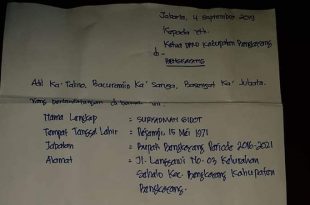 Jakarta, 4 September 2019
Kepada Yth.
Ketua DPRD Kabupaten Bengkayang
di -
BENGKAYANG
Adil Ka' Talino, Bacuramin Ka' Saruga, Basengat Ka' Jubata.
Yang bertandatangan di bawah ini :
Nama Lengkap : SURYADMAN GIDOT
Tempat Tanggal Lahir : 15 Mei 1971
Jabatan : Bupati Bengkayang Periode 2016-2021
Alamat : Jl. No. 03 Kelurahan
Sebalo Kec. Bengkayang Kabupaten
Bengkayang.